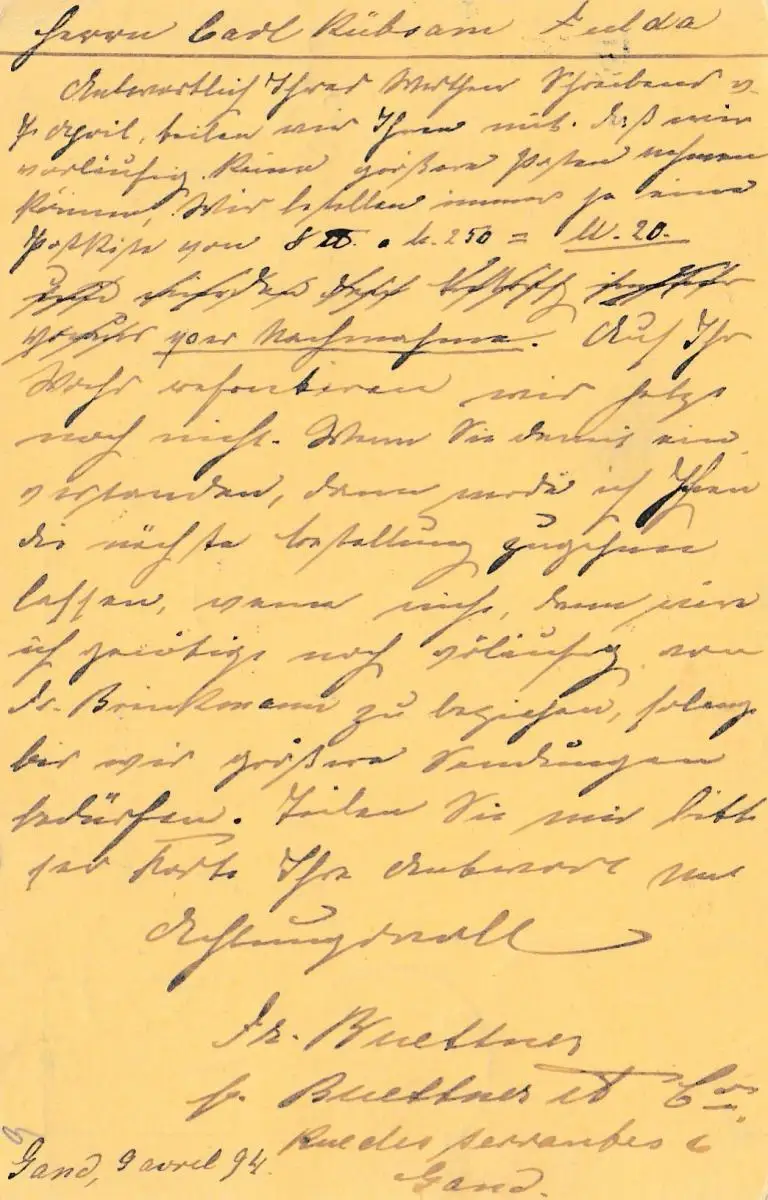 Herrn Carl Rübsam Fulda
Antwortlich Ihres Werthen Schreibens v.
7. April, teilen wir Ihnen mit, daß wir
vorläufig keine größere Posten nehmen
können. Wir bestellen immer je eine
Postkiste von 8 a M. 250 = M. 20.
per Nachnahme. Auf Ihr
Wachs reflektieren wir jetzt
noch nicht. Wenn Sie damit ein
verstanden, dann werde ich Ihnen
die nächste Bestellung zugehen
lassen, wenn nicht, dann wäre
ich genötigt noch vorläufig von
Fr. Brinkmann zu beziehen, solange
bis wir größere Sendungen
bedürfen. Teilen Sie mir bitte
per Karte Ihre Antwort mit
Achtungsvoll
Fr. Buettner
p. Buettner et Co.
Rue des 6
Gand, 9 avril 94.
Gand.